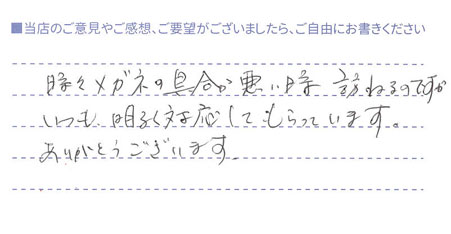 ■当店のご意見やご感想、ご要望がございましたら、ご自由にお書きください
時々メガネの具合が悪い時 訪ねるのですが
いつも 明るく対応してもらっています。
ありがとうございます。